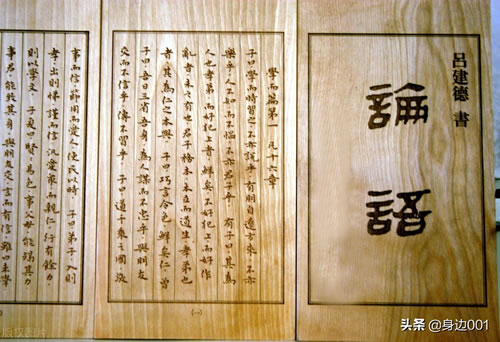 呂建德 書
論語
學而篇第一 凡十六章
子曰學而時習之不亦說乎有朋自遠方來不亦
樂乎人不知而不慍不亦君子乎 有子曰其為
人也孝弟而好犯上者鮮矣不好犯上而好作
亂者未之有也君子務本本立而道生孝弟也
者其為仁之本與 子曰巧言令色鮮矣仁 曾
子曰吾日三省吾身為人謀而不忠乎與朋友
交而不信乎傳不習乎 子曰道千乘之國敬
(一)
事而信節用而愛人使民以時 子曰弟子入則
孝出則悌謹而信汎愛眾而親仁行有餘力
則以學文 子夏曰賢賢易色事父母能竭其力
事君能致其身與朋友交言而有信雖曰未學
头条 @身边001